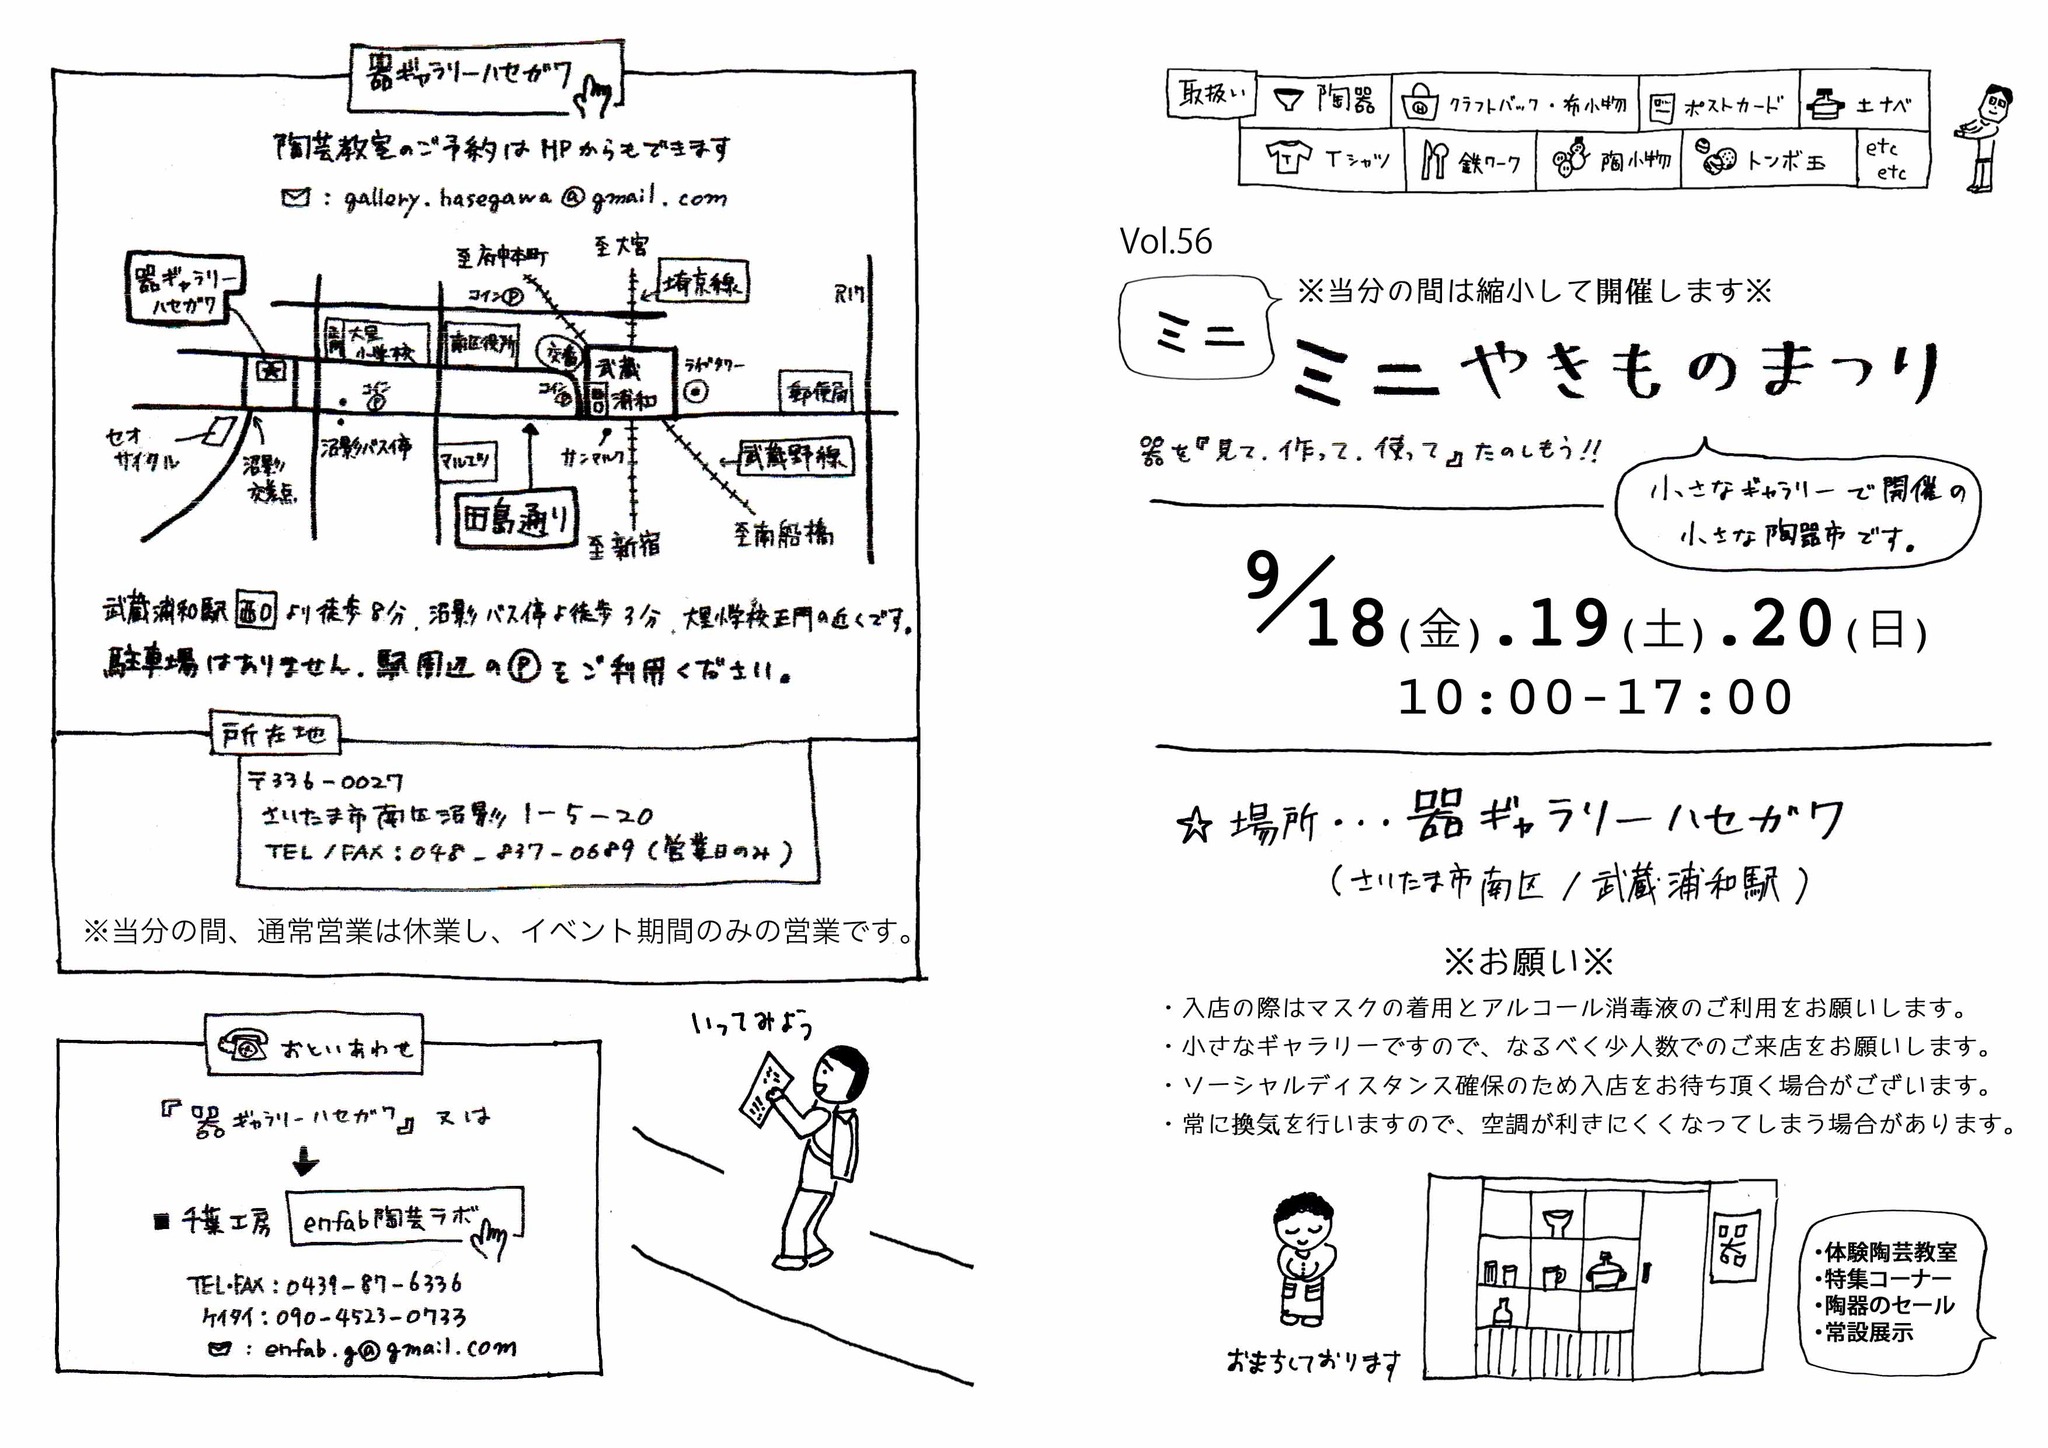 器ギャラリーハセガワ
陶芸教室のご予約はHPからもできます
: gallery.hasegawa@gmail.com
器ギャラリー
ハセガワ
至府中本町
至大宮
埼京線
R17
コインP
正門
大里
小学校
南区役所
交番
武蔵
浦和
西口
ラボタワー
郵便局
コイン
P
コイン
P
セオ
サイクル
沼影
交差点
沼影バス停
マルエツ
田島通り
サンマルク
武蔵野線
至新宿
至南船橋
武蔵浦和駅 西口 より徒歩8分、沼影バス停より徒歩3分、大里小学校正門の近くです。
駐車場はありません。駅周辺のPをご利用ください。
所在地
〒336-0027
さいたま市南区沼影1-5-20
TEL/FAX:048-837-0689(営業日のみ)
※当分の間、通常営業は休業し、イベント期間のみの営業です。
おといあわせ
『器ギャラリーハセガワ』又は
■千葉工房 enfab陶芸ラボ
TEL・FAX:0439-87-6336
ケイタイ:090-4523-0733
: enfab.g@gmail.com
いってみよう
取扱い
陶器
クラフトバック・布小物
ポストカード
土ナベ
Tシャツ
鉄ワーク
陶小物
トンボ玉
etc
etc
Vol.56
※当分の間は縮小して開催します※
ミニ
ミニやきものまつり
器を『見て.作って.使って』たのしもう!!
小さなギャラリーで開催の
小さな陶器市です。
9/18(金).19(土).20(日)
10:00-17:00
☆場所・・・器ギャラリーハセガワ
(さいたま市南区/武蔵浦和駅)
※お願い※
・入店の際はマスクの着用とアルコール消毒液のご利用をお願いします。
・小さなギャラリーですので、なるべく少人数でのご来店をお願いします。
・ソーシャルディスタンス確保のため入店をお待ち頂く場合がございます。
・常に換気を行いますので、空調が利きにくくなってしまう場合があります。
器
おまちしております
・体験陶芸教室
・特集コーナー
・陶器のセール
・常設展示